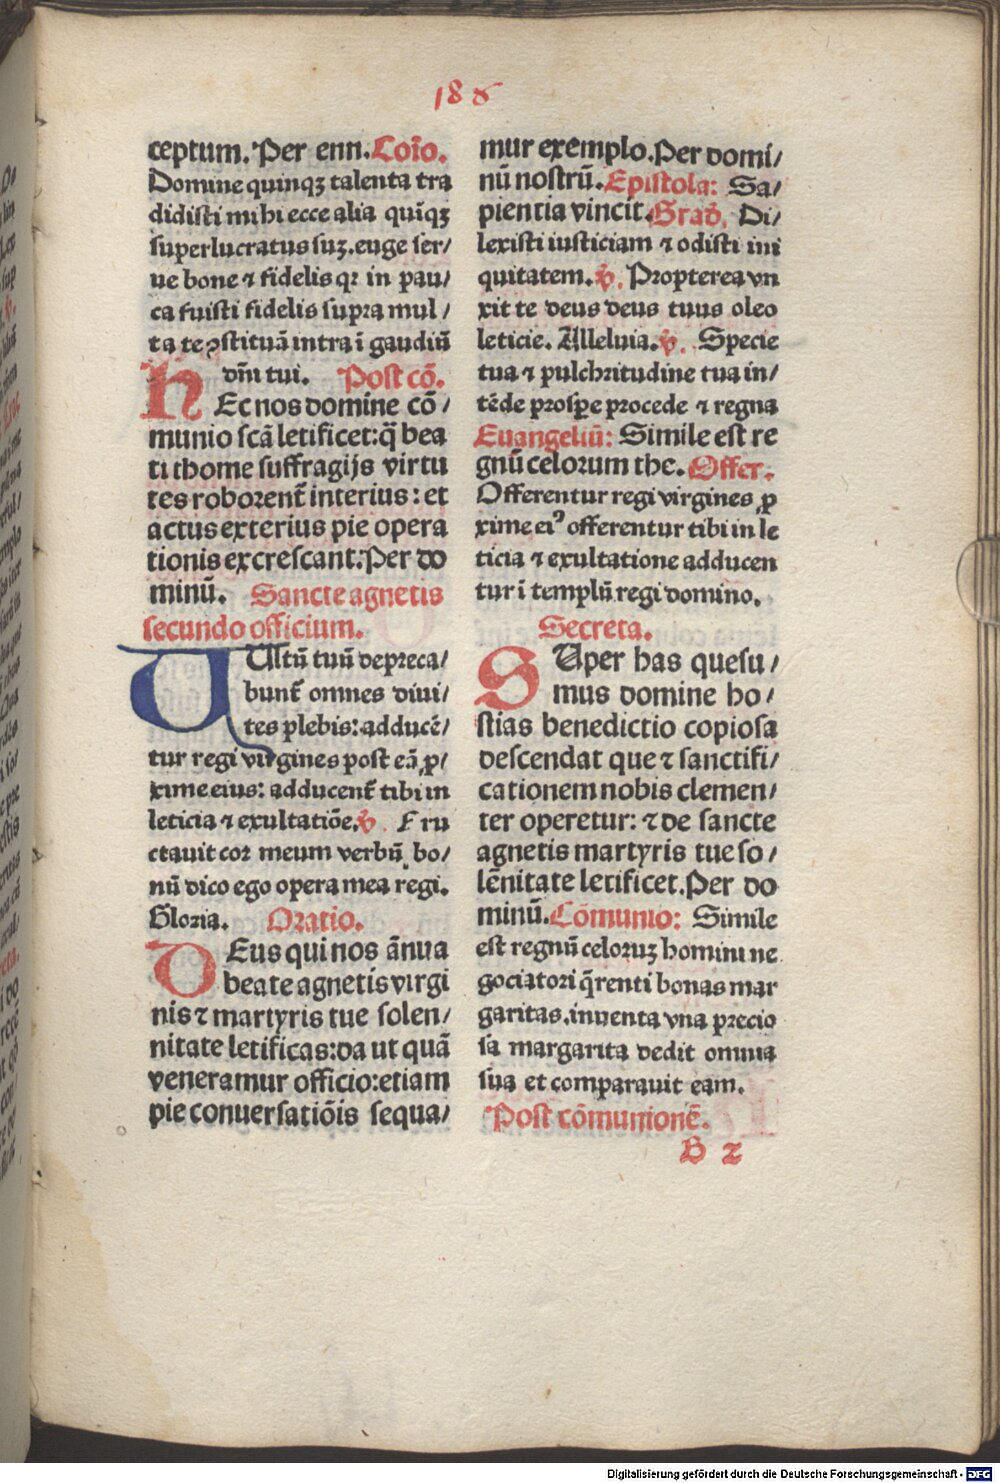 188
ceptum. Per enn. Coīo.
Domine quinqꝫ talenta tra
didisti mihi ecce alia quīqꝫ
superlucratus suꝫ. euge ser/
ue bone ⁊ fidelis qꝛ in pau/
ca fuisti fidelis supra mul/
ta te ꝯstituā intra ī gaudiū
dn̄i tui. Post cō.
HEc nos domine cō/
munio scā letificet: q̄ bea
ti thome suffragijs virtu
tes roborent̄ interius: et
actus exterius pie opera
tionis excrescant. Per do
minū. Sancte agnetis
secundo officium.
VUltū tuū depreca/
bunt̄ omnes diui/
tes plebis: adducē/
tur regi virgines post eā, ꝓ/
xime eius: adducent̄ tibi in
leticia ⁊ exultatiōe. ℣. Eru
ctauit cor meum verbū bo/
nū dico ego opera mea regi.
Gloria. Oratio.
DEus qui nos ānua
beate agnetis virgi
nis ⁊ martyris tue solen/
nitate letificas: da ut quā
veneramur officio: etiam
pie conuersatiōis sequa/
mur exemplo. Per domi/
nū nostrū. Epistola: Sa/
pientia vincit. Grad̄. Di/
lexisti iusticiam ⁊ odisti ini
quitatem. ℣. Propterea vn
xit te deus deus tuus oleo
leticie. Alleluia. ℣. Specie
tua ⁊ pulchritudine tua in/
tēde prosꝑe procede ⁊ regna
Euangeliū: Simile est re
gnū celorum the. Offer.
Offerentur regi virgines ꝓ
xime eiꝰ offerentur tibi in le
ticia ⁊ exultatione adducen
tur ī templū regi domino.
Secreta.
SUper has quesu/
mus domine ho/
stias benedictio copiosa
descendat que ⁊ sanctifi/
cationem nobis clemen/
ter operetur: ⁊ de sancte
agnetis martyris tue so/
lēnitate letificet. Per do
minū. Cōmunio: Simile
est regnū celoruꝫ homini ne
gociatori q̄renti bonas mar
garitas. inuenta vna precio
sa margarita dedit omnia
sua et comparauit eam.
Post cōmunionē.
B 2
Digitalisierung gefördert durch die Deutsche Forschungsgemeinschaft - DFG